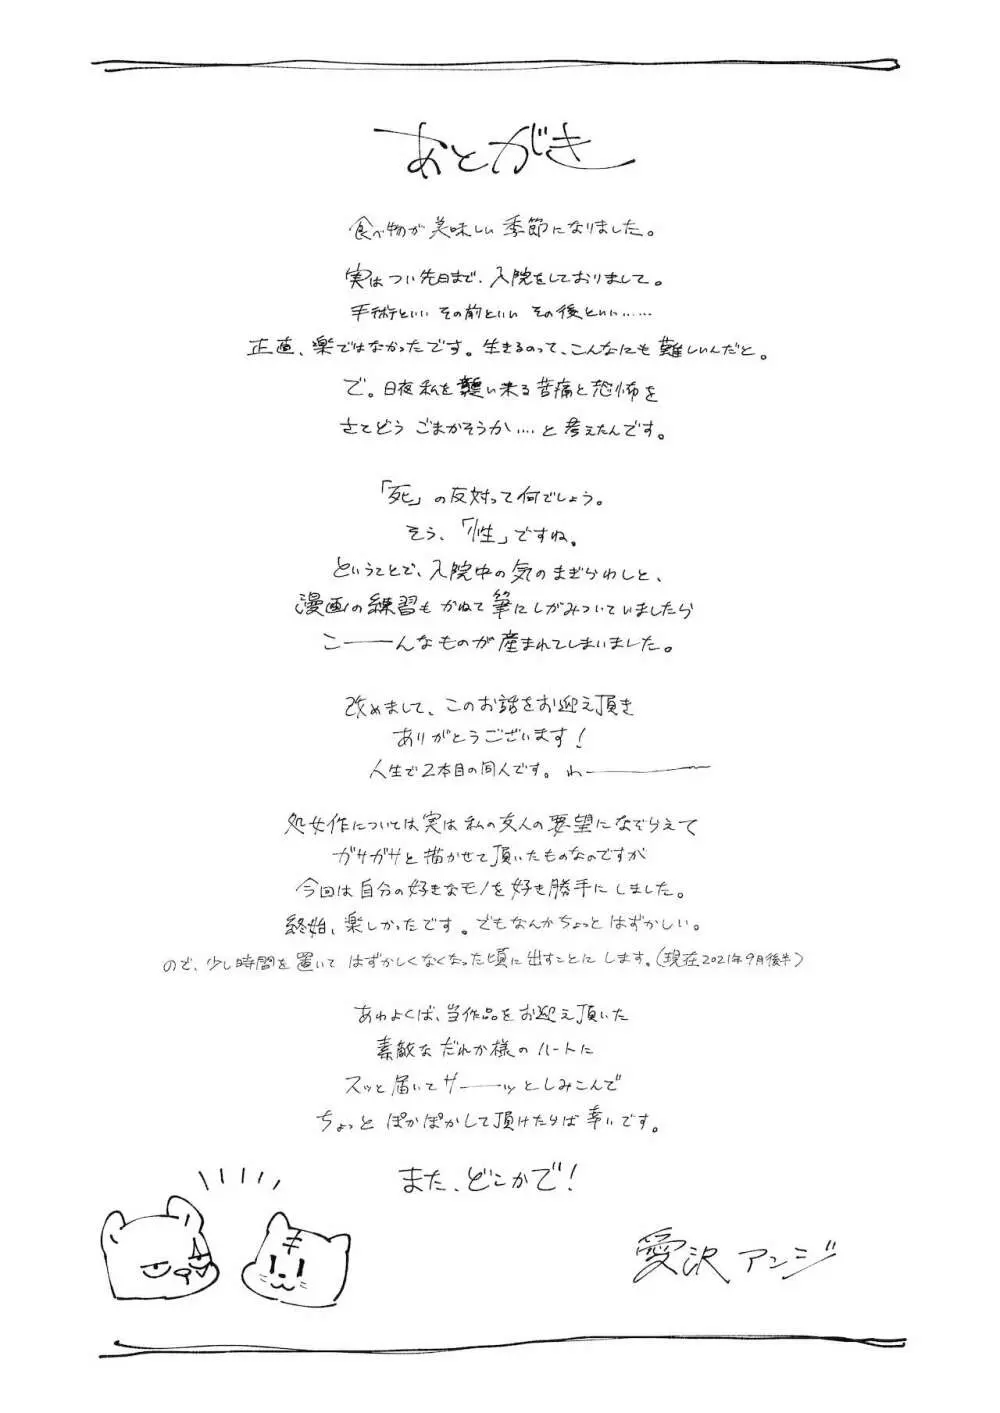 あとがき
食べ物が美味しい季節になりました。
実はつい先日まで、入院をしておりまして。
手術といい その前といい その後といい……
正直、楽ではなかったです。生きるのって、こんなにも難しいんだと。
で。日夜私を襲い来る苦痛と恐怖を
さてどう ごまかそうか…と考えたんです。
「死」の反対って何でしょう。
そう、「性」ですね。
ということで、入院中の気のまぎらわしと、
漫画の練習もかねて筆にしがみついていましたら
こーーんなものが産まれてしまいました。
改めまして、このお話をお迎え頂き
ありがとうございます!
人生で2本目の同人です。わーーー
処女作については実は私の友人の要望になぞらえて
ガサガサと描かせて頂いたものなのですが
今回は自分の好きなモノを好き勝手にしました。
終始、楽しかったです。でもなんかちょっとはずかしい。
ので、少し時間を置いて はずかしくなくなった頃に出すことにします。(現在2021年9月後半)
あわよくば、当作品をお迎え頂いた
素敵なだれか様のハートに
スッと届いてサーーッとしみこんで
ちょっと ぽかぽかして頂けたらば幸いです。
また、どこかで!
愛沢アンジ